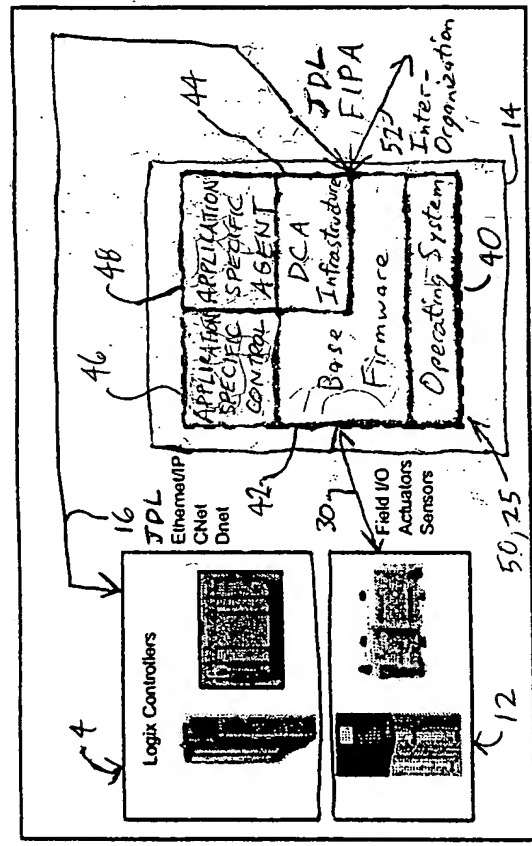 4
Logix Controllers
16
JDL
Ethernet/IP
CNet
Dnet
12
30
Field I/O
Actuators
Sensors
42
46
APPLICATION
SPECIFIC
CONTROL
48
APPLICATION
SPECIFIC
AGENT
44
DCA
Infrastructure
Base
Firmware
Operating System
40
50, 25
JDL
FIPA
52
Inter-
Organization
14